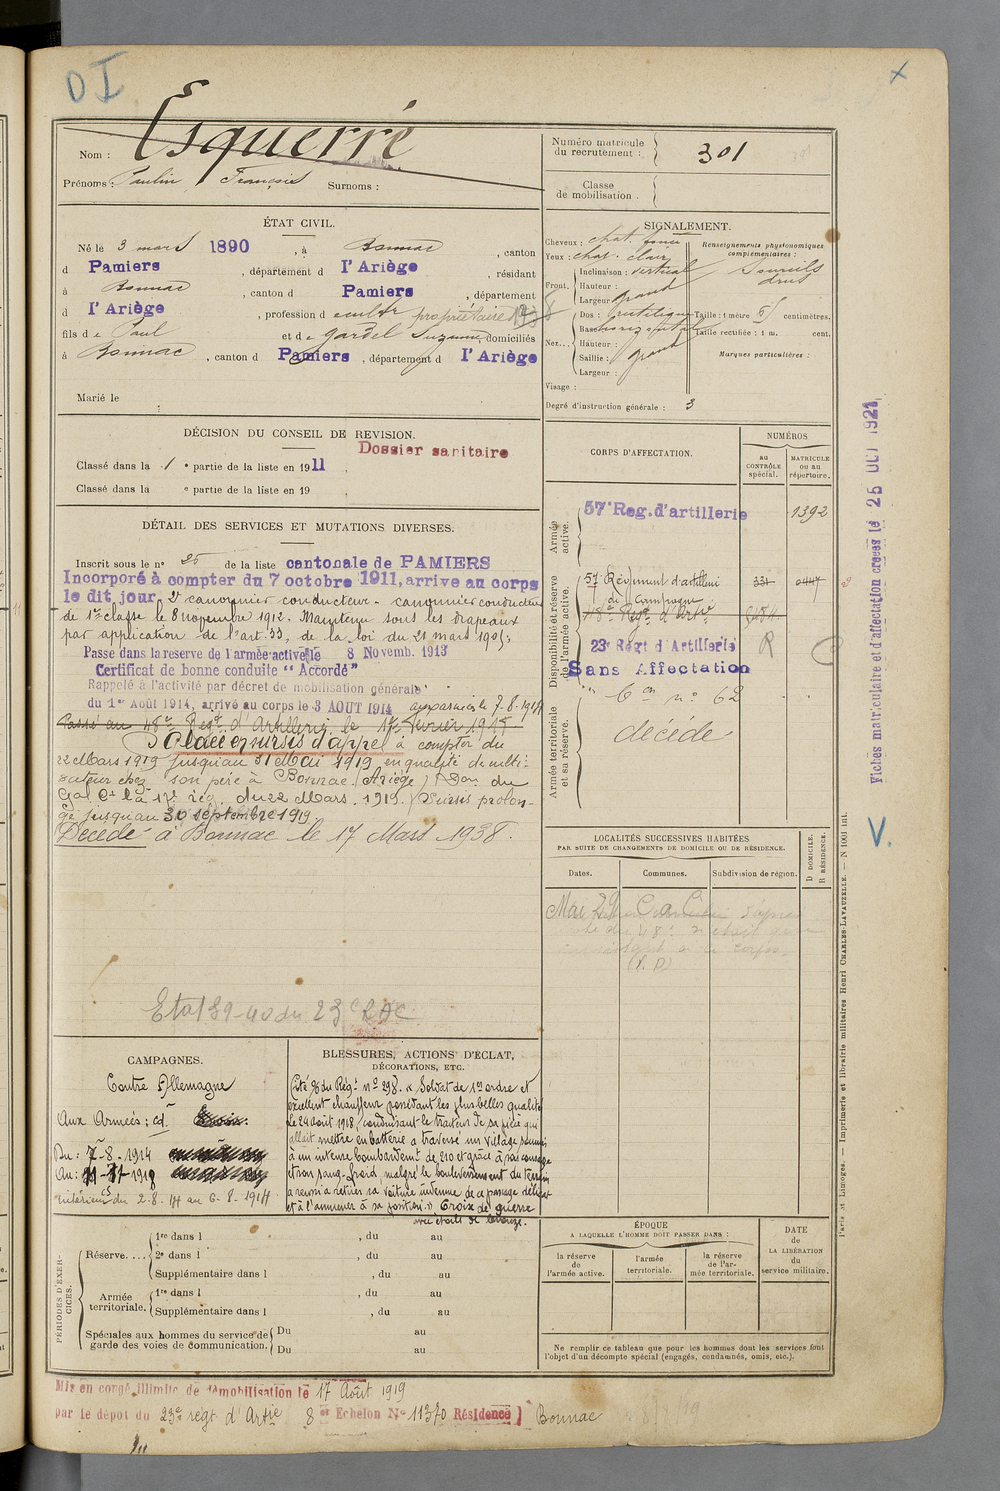 D I
X
Nom : Esquerré
Prénoms : Paulin, François Surnoms :
Numéro matricule du recrutement : 301
Classe de mobilisation .
ÉTAT CIVIL.
Né le 3 mars 1890, à Bonnac, canton
d Pamiers, département d l'Ariège, résidant
à Bonnac, canton d Pamiers, département
d l'Ariège, profession d cultr propriétaire
fils de Paul et de Gardel Suzanne, domiciliés
à Bonnac, canton d Pamiers, département d l'Ariège
Marié le
SIGNALEMENT.
Cheveux : chat. foncé
Yeux : chat. clair
Renseignements physionomiques complémentaires :
Sourcils drus
Front. Inclinaison : vertical
Hauteur :
Largeur : grand
Nez... Dos : rectiligne
Base : horizontal
Hauteur :
Saillie : grand
Largeur :
Taille : 1 mètre centimètres.
Taille rectifiée : 1 m. cent.
Marques particulières :
Visage :
Degré d'instruction générale : 3
DÉCISION DU CONSEIL DE REVISION.
Dossier sanitaire
Classé dans la 1e partie de la liste en 1911
Classé dans la e partie de la liste en 19
DÉTAIL DES SERVICES ET MUTATIONS DIVERSES.
Inscrit sous le n° 25 de la liste cantonale de PAMIERS
Incorporé à compter du 7 octobre 1911, arrivé au corps
le dit jour, 2e canonnier conducteur - canonnier conducteur
de 1re classe le 8 novembre 1912. Maintenu sous les drapeaux
par application de l'art. 33, de la loi du 21 mars 1905;
Passé dans la reserve de l'armée active le 8 Novemb. 1913
Certificat de bonne conduite "Accordé"
Rappelé à l'activité par décret de mobilisation générale
du 1er Août 1914, arrivé au corps le 3 AOUT 1914 aux armées le 7-8-1914
Passé au 48e Régt d'Artillerie le 17 février 1915
Placé en sursis d'appel à compter du
22 Mars 1919 jusqu'au 31 Mai 1919 en qualité de culti-
vateur chez son père à Bonnac (Ariège) Don du
Gal Ct la 17e rég. du 22 Mars 1919. Sursis prolon-
gé jusqu'au 30 septembre 1919
Décédé à Bonnac le 17 Mars 1938.
Etat 39-40 du 23e RAC
CORPS D'AFFECTATION.
NUMÉROS
au CONTRÔLE spécial.
MATRICULE ou au répertoire.
Armée active.
57e Reg. d'artillerie 1392
Disponibilité et réserve de l'armée active.
57 Régiment d'artillerie de Campagne 331
48e Regt d'Artie
23e Régt d'Artillerie R
Sans Affectation
Armée territoriale et sa réserve.
" 6 on n° 62
décédé
Fiches matriculaire et d'affectation créées le 25 OCT 1921
V.
LOCALITÉS SUCCESSIVES HABITÉES
PAR SUITE DE CHANGEMENTS DE DOMICILE OU DE RÉSIDENCE.
D DOMICILE.
R RÉSIDENCE.
Dates. Communes. Subdivision de région.
CAMPAGNES.
Contre Allemagne
Aux Armées : cd.
Du : 7-8-1914
Au : 11-11-1918
Intérieur du 2.8.14 au 6.8.1914
BLESSURES, ACTIONS D'ÉCLAT,
DÉCORATIONS, ETC.
Cité O/ du Régt n° 298. « Soldat de 1er ordre et
excellent chauffeur possédant les plus belles qualités
Le 24 août 1918 conduisant le tracteur de sa pièce qui
allait mettre en batterie a traversé un village soumis
à un intense bombardement de 210 et grâce à son courage
et son sang-froid malgré le bouleversement du terrain
a réussi à retirer sa voiture indemne de ce passage délicat
et à l'amener à sa position. » Croix de guerre
avec étoile de bronze.
PÉRIODES D'EXERCICES.
Réserve.... 1re dans l , du au
2e dans l , du au
Supplémentaire dans l , du au
Armée territoriale. 1re dans l , du au
Supplémentaire dans l , du au
Spéciales aux hommes du service de garde des voies de communication. Du au
Du au
ÉPOQUE
A LAQUELLE L'HOMME DOIT PASSER DANS :
la réserve de l'armée active.
l'armée territoriale.
la réserve de l'armée territoriale.
DATE de LA LIBÉRATION du service militaire.
Ne remplir ce tableau que pour les hommes dont les services font
l'objet d'un décompte spécial (engagés, condamnés, omis, etc.).
Paris et Limoges. — Imprimerie et librairie militaires Henri CHARLES-LAVAUZELLE. — N 1001 int.
Mis en congé illimité de démobilisation le 17 Août 1919
par le dépot du 23e regt d'Artie 8e Echelon N° 11370 Résidence Bonnac